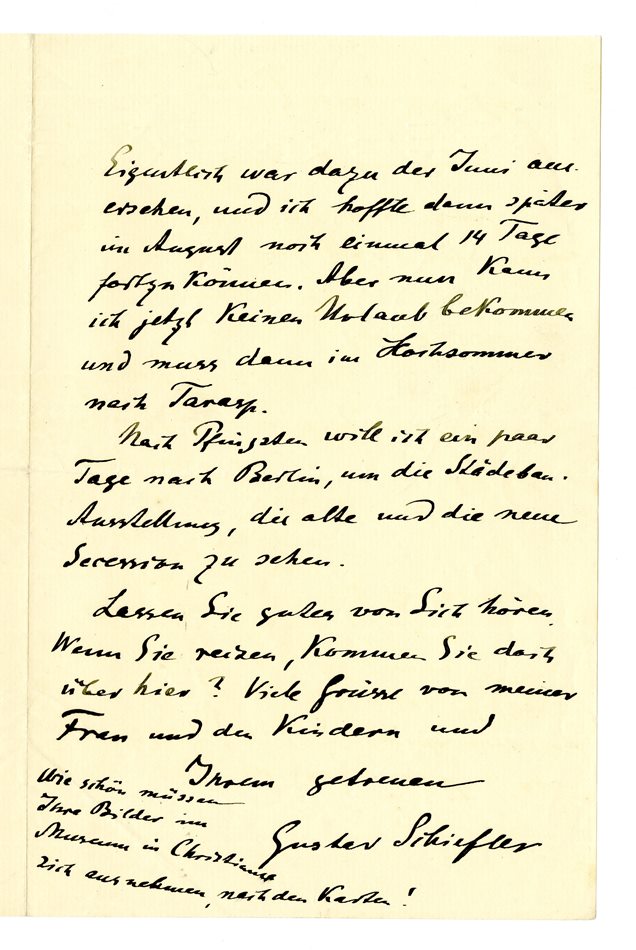 Eigentlich war dazu der Juni aus-
ersehen, und ich hoffte dann später
im August noch einmal 14 Tage
fortzukönnen. Aber nun kann
ich jetzt keinen Urlaub bekommen
und muss dann im Hochsommer
nach Tarasp.
Nach Pfingsten will ich ein paar
Tage nach Berlin, um die Städebau-
Ausstellung, die alte und die neue
Secession zu sehen.
Lassen Sie gutes von Sich hören.
Wenn Sie reisen, kommen Sie doch
über hier? Viele Grüsse von meiner
Frau und den Kindern und
Ihrem getreuen
Gustav Schiefler
Wie schön müssen
Ihre Bilder im
Museum in Christiania
sich ausnehmen, nach den Karten!